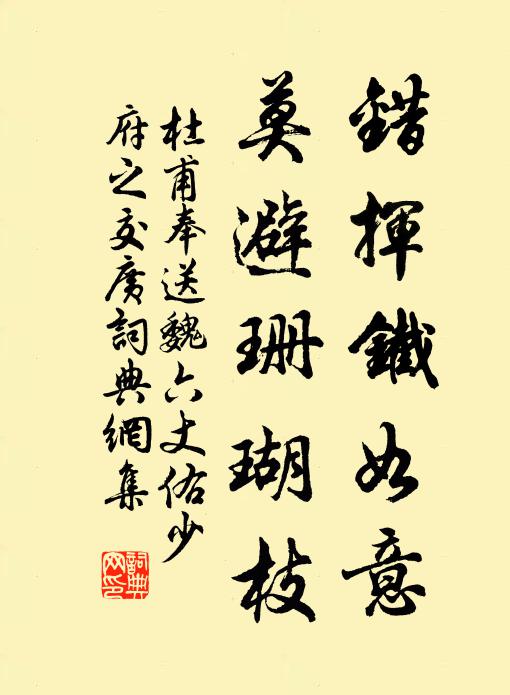 錯揮鐵如意
莫避珊瑚枝
杜甫奉送魏六丈佑少
府之交廣詞典網集
詞典網印